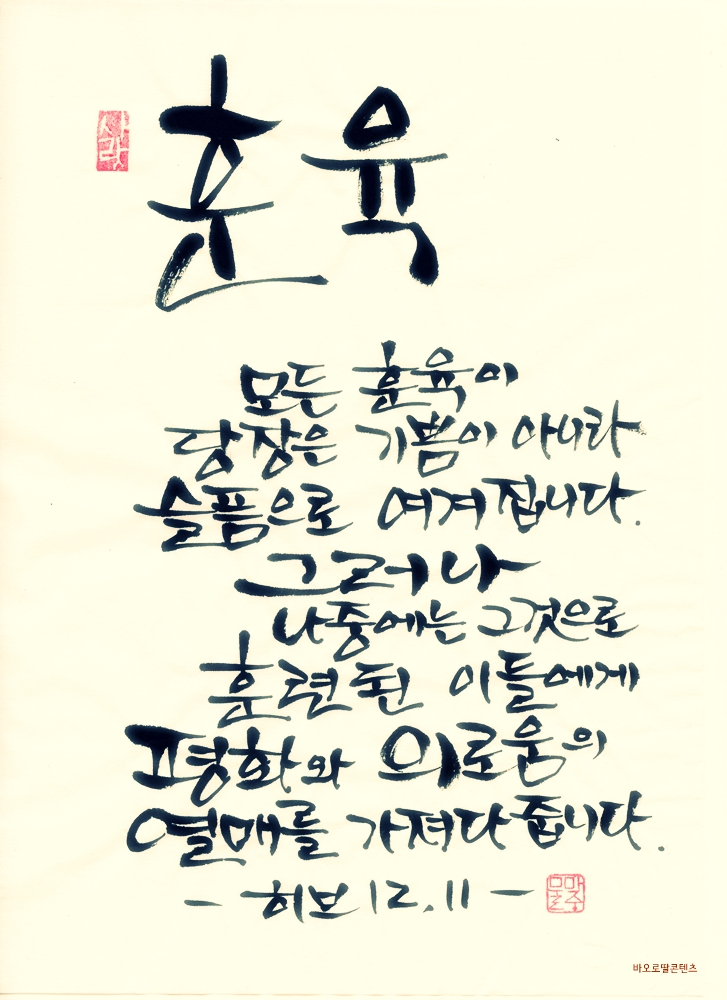 훈육
사랑
모든 훈육이
당장은 기쁨이 아니라
슬픔으로 여겨집니다.
그러나
나중에는 그것으로
훈련된 이들에게
평화와 의로움의
열매를 가져다 줍니다.
- 히브 12.11 -
바오로딸콘텐츠